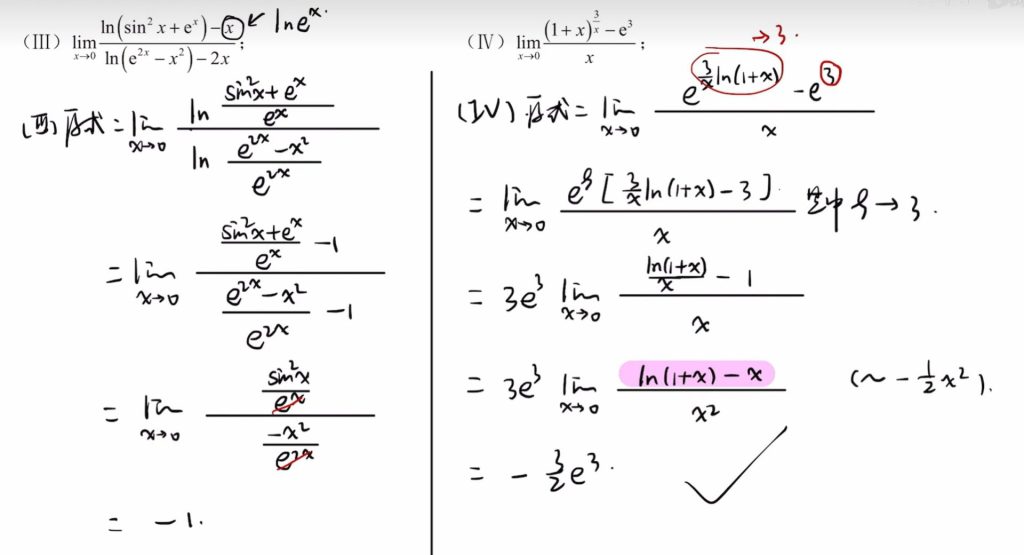 (III) lim_{x→0} [ln(sin²x+eˣ)−x] / [ln(e^{2x}−x²)−2x]; ← ln eˣ.
(III) 原式 = lim_{x→0} [ln (sin²x+eˣ)/eˣ] / [ln (e^{2x}−x²)/e^{2x}]
= lim_{x→0} [(sin²x+eˣ)/eˣ −1] / [(e^{2x}−x²)/e^{2x} −1]
= lim_{x→0} [sin²x/eˣ] / [−x²/e^{2x}]
= −1.
(IV) lim_{x→0} [(1+x)^{3/x}−e³] / x; →3.
(IV) 原式 = lim_{x→0} [e^{(3/x)ln(1+x)} −e³] / x
= lim_{x→0} e^ξ[(3/x)ln(1+x)−3] / x 其中 ξ→3.
= 3e³ lim_{x→0} [ln(1+x)/x − 1] / x
= 3e³ lim_{x→0} [ln(1+x)−x] / x² (~ −½x²).
= −(3/2)e³.